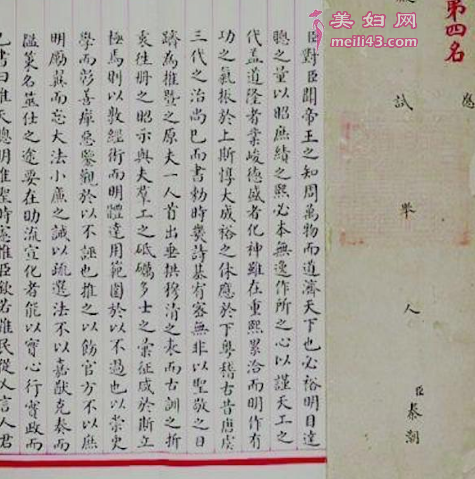 美妇网
meili43.com
第四名
應試舉人臣秦潮
臣對臣聞帝王之知周萬物而道濟天下也必裕明目達
聰之量以昭庶績之熙必本無逸作所之心以謹天工之
代蓋道隆者業峻德盛者化神雖在重熙累洽而明作有
功之氣振於上斯惇大成裕之休應於下粵稽古昔唐虞
三代之治尚已而書勅時幾詩基宥密無非以聖敬之日
躋為推暨之原夫一人首出垂拱穆清之表而古訓之折
衷往冊之昭示與夫羣工之砥礪多士之彙征咸於斯立
極焉則以敦經術而明體達用範圍於以不過也以崇史
學而彰善癉惡鑒觀於以不誣也推之以飭官方不以庶
明厲翼而忘大法小廉之誡以疏選法不以嘉猷克奏而
隘策名筮仕之途要在助流宣化者能以實心行實政而
已書曰惟天聰明惟聖時憲惟臣欽若惟民從乂言人君